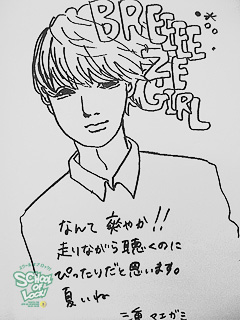 BREEEE
ZE
GIRL
なんて 爽やか!!
走りながら聴くのに
ぴったりだと思います。
夏いね
SCHOOL
OF
LOCK!
二重マエガミ